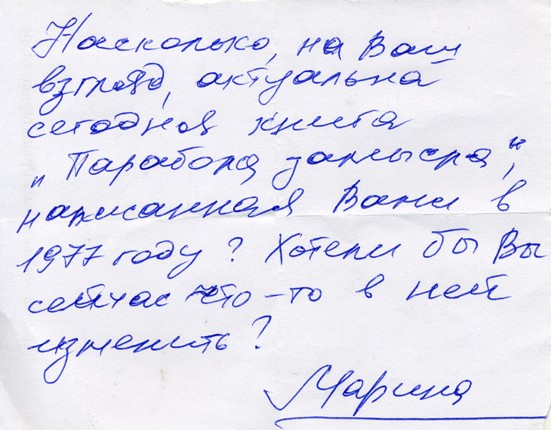 Насколько, на Ваш
взгляд, актуальна
сегодня книга
„Парабола замысла“,
написанная Вами в
1977 году? Хотели бы Вы
сейчас что-то в ней
изменить?
Марина